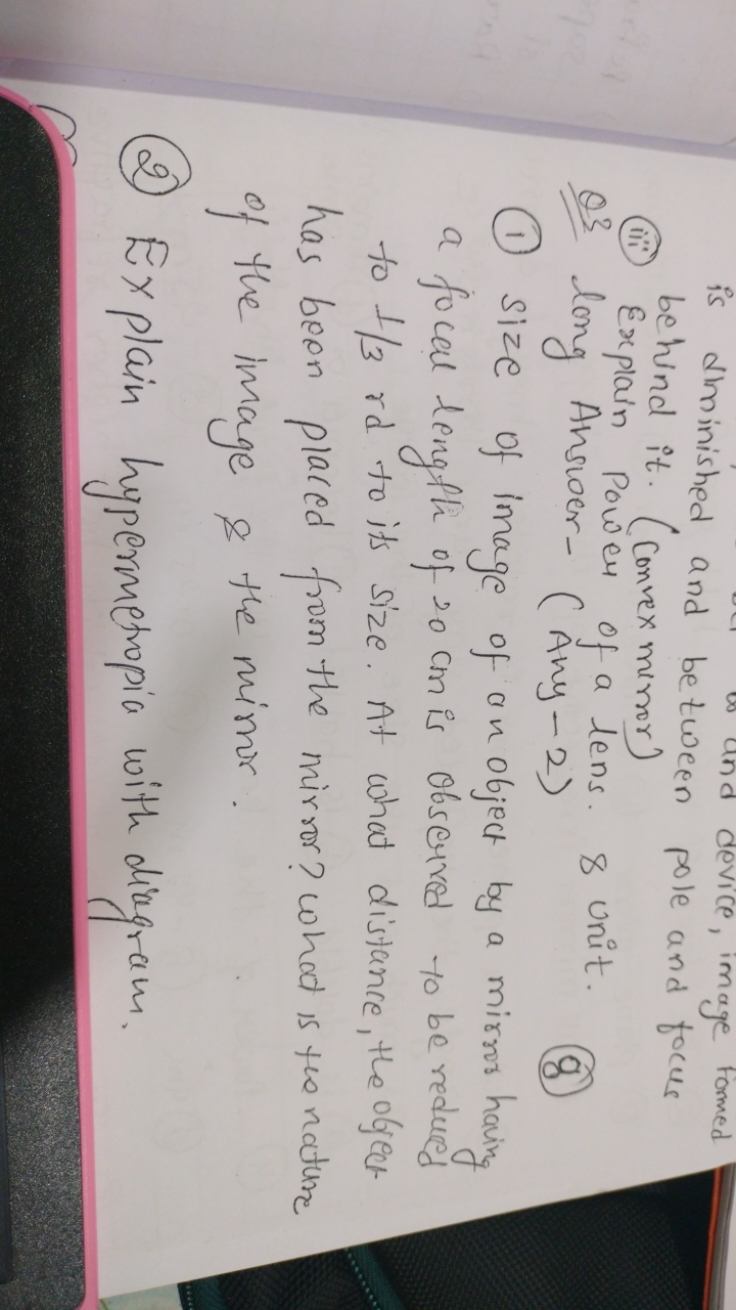 and device, image formed
is diminished and between pole and focus
behind it. (Convex mirror)
(iii) Explain Power of a lens. & unit.
Q3 long Answer- (Any-2) (9)
(1) size of image of an object by a mirror having
a focal length of 20 cm is observed to be reduced
to 1/3 rd to its size. At what distance, the object
has been placed from the mirror? what is the nature
of the image & the mirror.
(2) Explain hypermetropia with diagram.